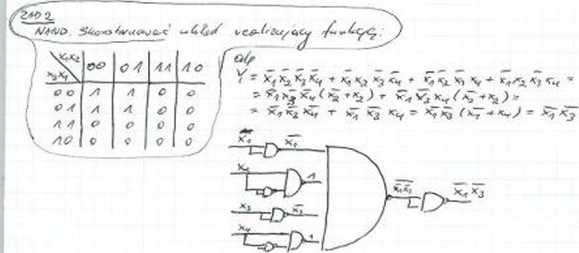 ZAD 2
NAND. Skonstruować układ realizujący funkcję:
x₁x₂ 00 01 11 10
x₃x₄
00 1 1 0 0
01 1 1 0 0
11 0 0 0 0
10 0 0 0 0
odp
Y = x̅₁ x̅₂ x̅₃ x̅₄ + x̅₁ x₂ x̅₃ x̅₄ + x̅₁ x̅₂ x̅₃ x₄ + x̅₁ x₂ x̅₃ x₄ =
= x̅₁ x̅₃ x̅₄ (x̅₂ + x₂) + x̅₁ x̅₃ x₄ (x̅₂ + x₂) =
= x̅₁ x̅₃ x̅₄ + x̅₁ x̅₃ x₄ = x̅₁ x̅₃ (x̅₄ + x₄) = x̅₁ x̅₃
x₁ x̅₁
1
x̅₁ x̅₃ x̅₁ x̅₃
x₃ x̅₃
x₄ 1